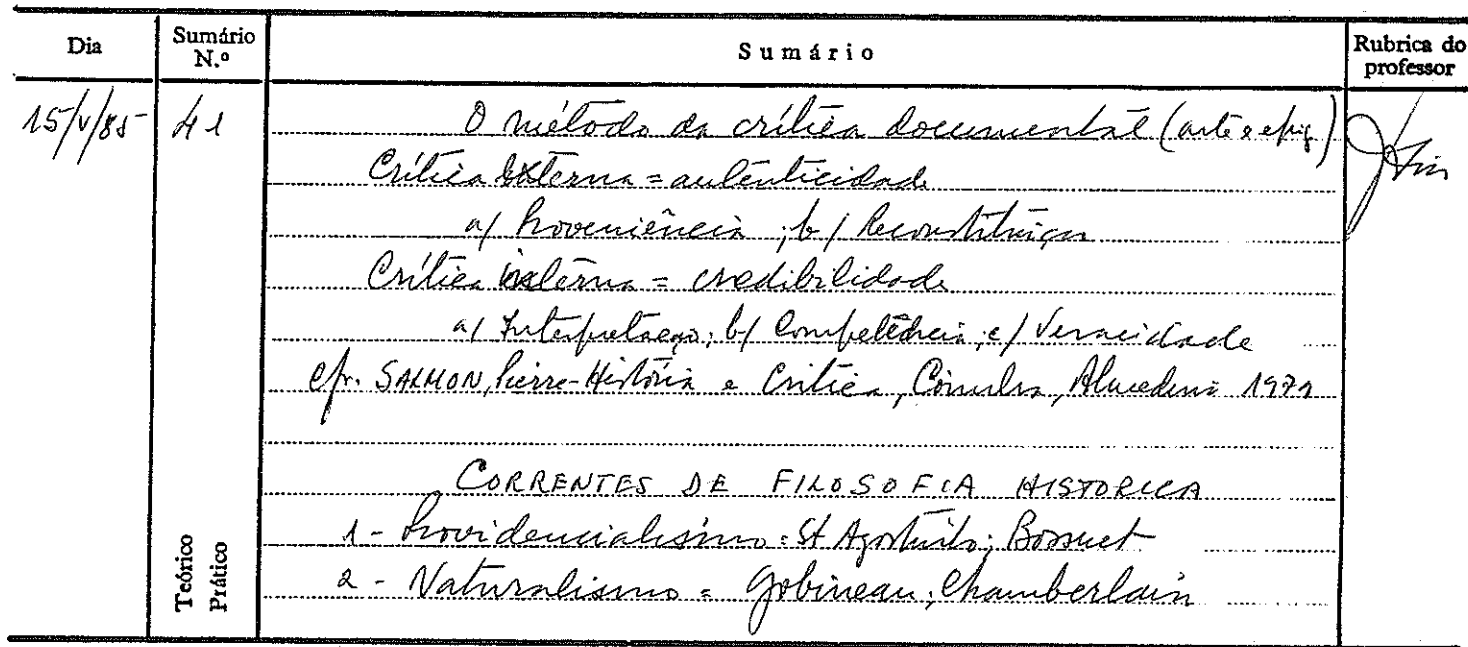 Dia Sumário N.º Sumário Rubrica do professor
15/V/85 41 O método da crítica documental (arte e epig.)
Crítica Externa = autenticidade
a/ Proveniência; b/ Reconstituição
Crítica interna = credibilidade
a/ Interpretação; b/ Competência; c/ Veracidade
cfr. SALMON, Pierre - História e Crítica, Coimbra, Almedina 1979
CORRENTES DE FILOSOFIA HISTORICA
1 - Providencialismo = St Agostinho; Bossuet
2 - Naturalismo = Gobineau; Chamberlain
Teórico
Prático